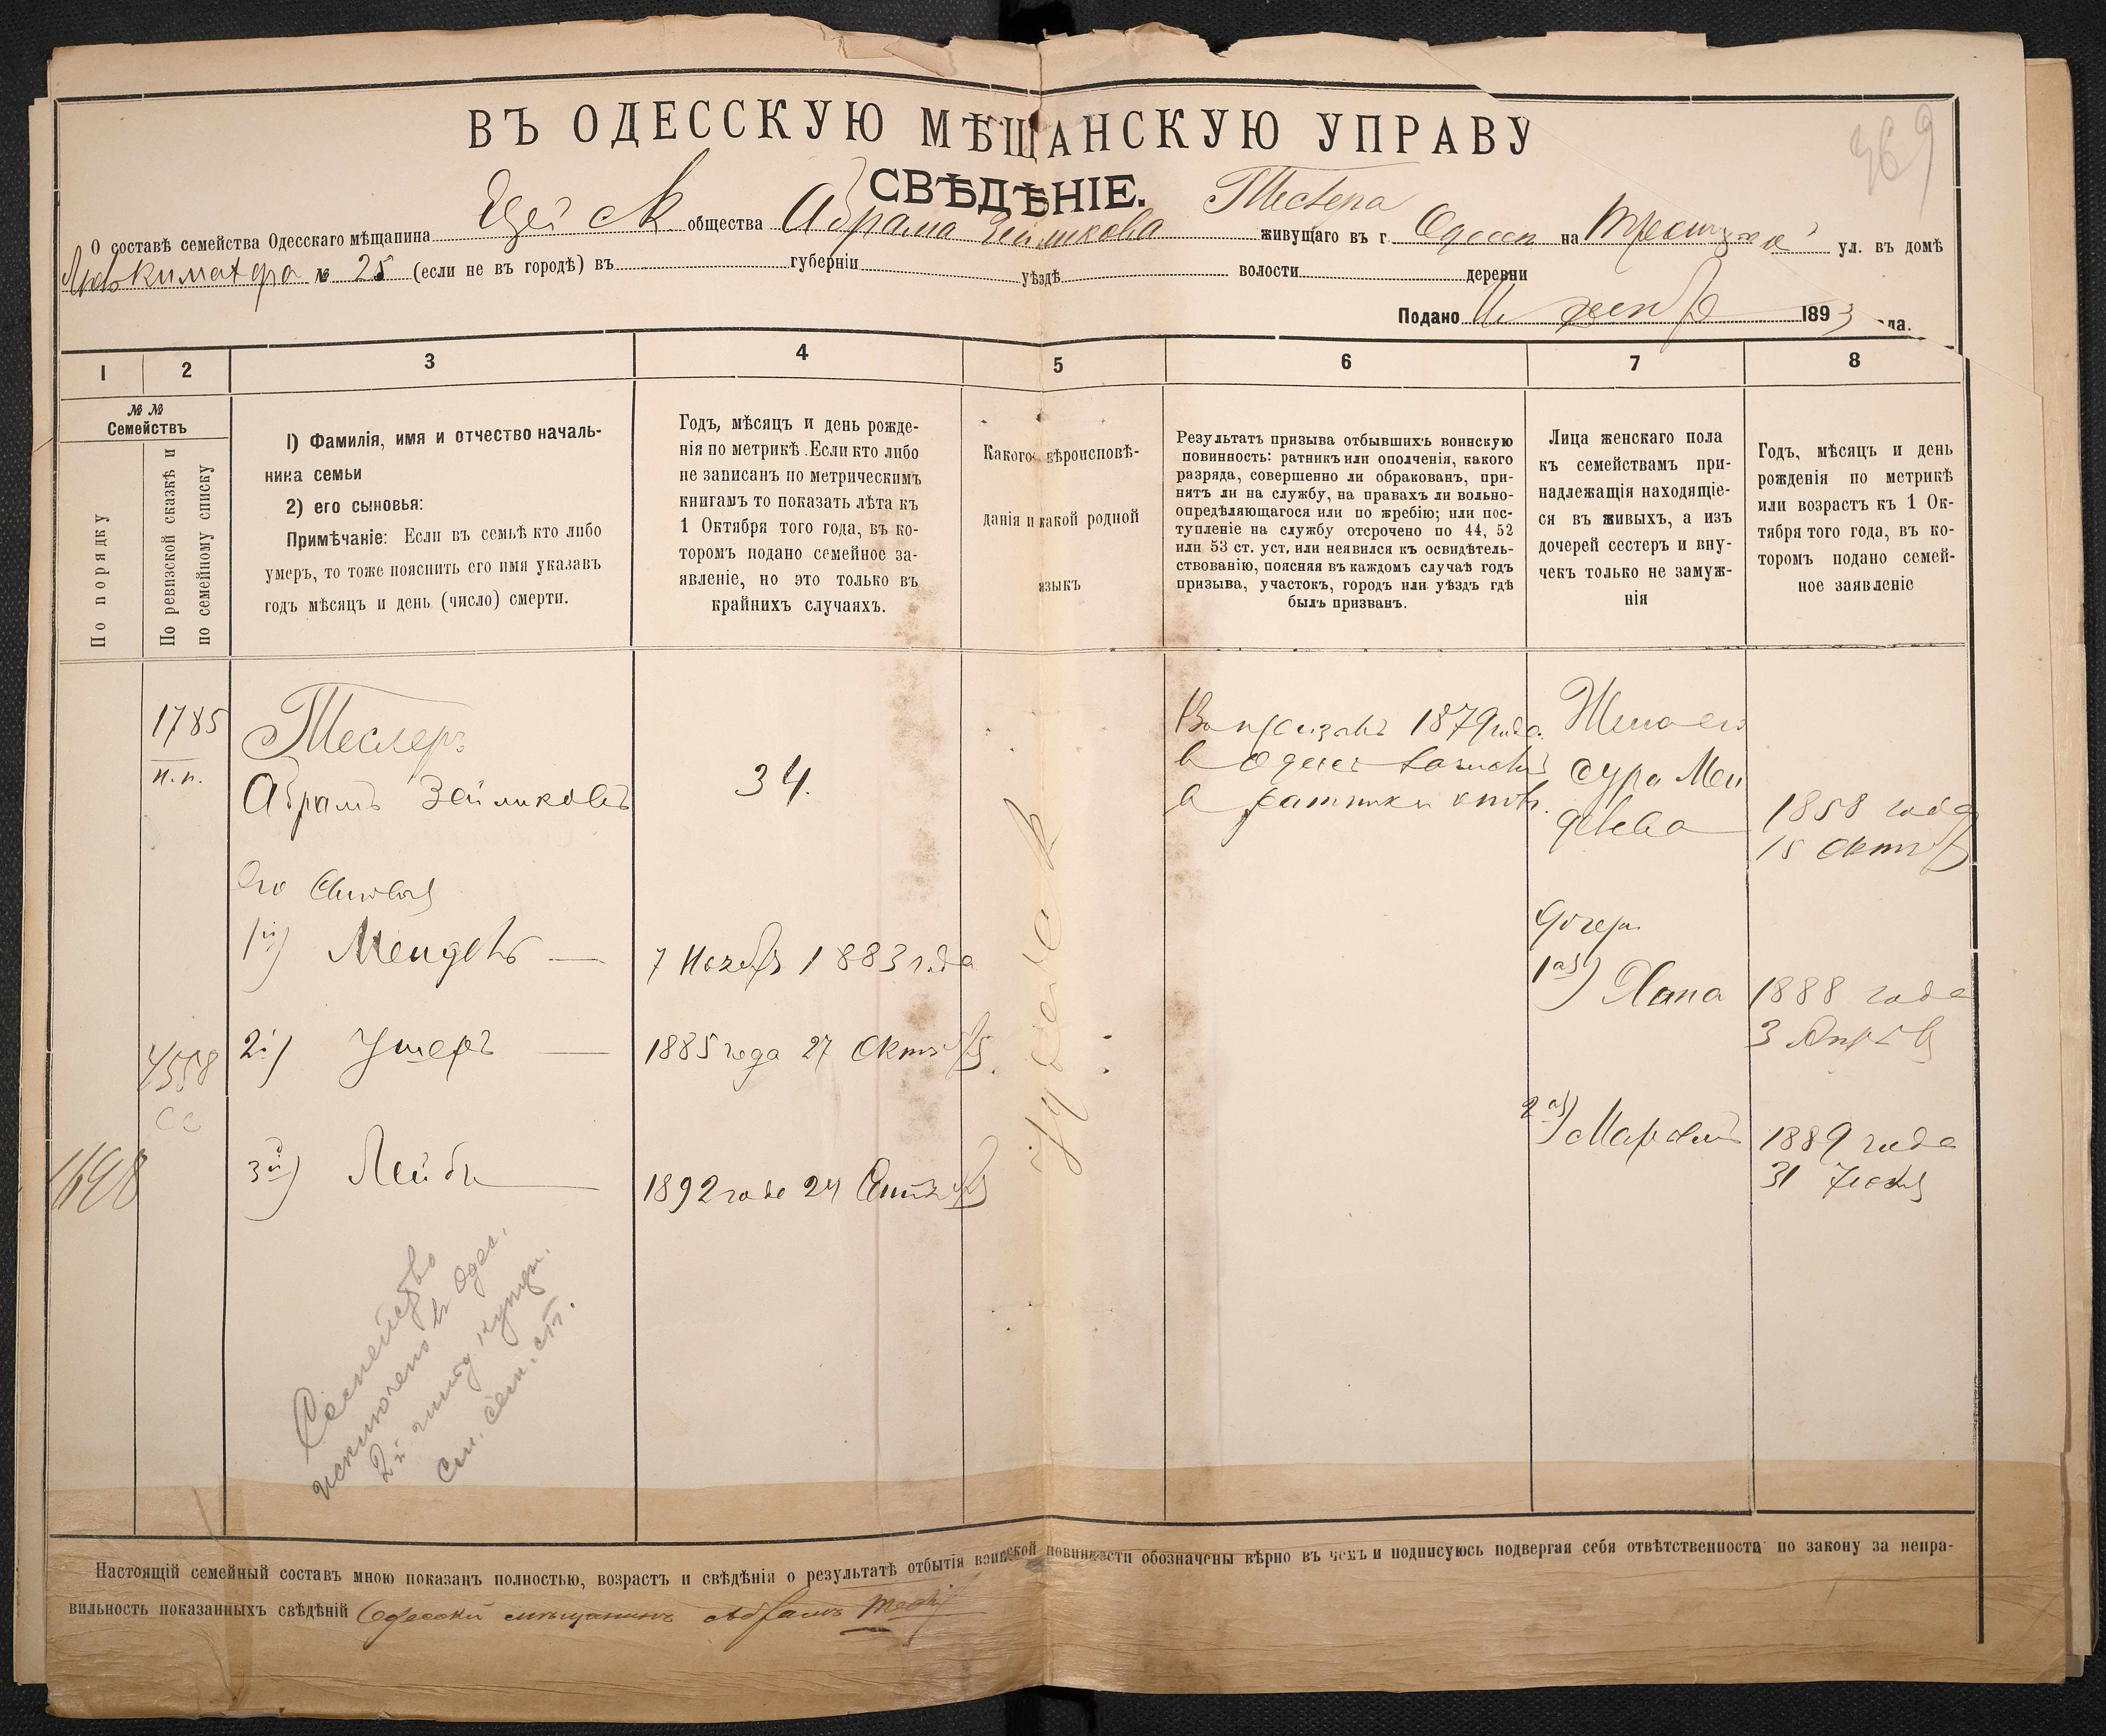 369
ВЪ ОДЕССКУЮ МѢЩАНСКУЮ УПРАВУ
СВѢДѢНІЕ.
О составѣ семейства Одесскаго мѣщанина общества Абрама Зейликова Теслера живущаго въ г Одессѣ на ул. въ домѣ
№ 25 (если не въ городѣ) въ губерніи уѣздѣ волости деревни
Подано 1893 да.
1 2 3 4 5 6 7 8
№ №
Семействъ
По порядку
По ревизской сказкѣ и
по семейному списку
1) Фамилія, имя и отчество началь-
ника семьи
2) его сыновья:
Примѣчаніе: Если въ семьѣ кто либо
умеръ, то тоже пояснить его имя указавъ
годъ мѣсяцъ и день (число) смерти.
Годъ, мѣсяцъ и день рожде-
нія по метрикѣ. Если кто либо
не записанъ по метрическимъ
книгамъ то показать лѣта къ
1 Октября того года, въ ко-
торомъ подано семейное за-
явленіе, но это только въ
крайнихъ случаяхъ.
Какого вѣроисповѣ-
данія и какой родной
языкъ
Результатъ призыва отбывшихъ воинскую
повинность: ратникъ или ополченія, какого
разряда, совершенно ли обракованъ, при-
нятъ ли на службу, на правахъ ли вольно-
опредѣляющагося или по жребію; или пос-
тупленіе на службу отсрочено по 44, 52
или 53 ст. уст, или неявился къ освидѣтель-
ствованію, поясняя въ каждомъ случаѣ годъ
призыва, участокъ, городъ или уѣздъ гдѣ
былъ призванъ.
Лица женскаго пола
къ семействамъ при-
надлежащія находящіе-
ся въ живыхъ, а изъ
дочерей сестеръ и вну-
чекъ только не замуж-
нія
Годъ, мѣсяцъ и день
рожденія по метрикѣ
или возрастъ къ 1 Ок-
тября того года, въ ко-
торомъ подано семей-
ное заявленіе
1785
н. п.
Теслеръ
Абрамъ Зейликовъ
34.
иудейск
В призывъ 1879 года
в Одессѣ зачисленъ
в ратники ополч.
Жена его
Сура Мен
делева
1858 года
15 Октября
Его Сыновья
1й) Мендель
7 Ноября 1883 года
дочери
1ая) Хана
1888 года
3 Апрѣля
4558
сс
2й) Ушеръ
1885 года 27 Октября
2ая) Марьямъ
1889 года
31 Іюля
1698
3й) Лейбъ
1892 года 24 Сентября
Семейство
исключено в Одес.
2й гильд. купцы.
См. сем. сп.
Настоящій семейный составъ мною показанъ полностью, возрастъ и свѣдѣнія о результатѣ отбытія воинской повинности обозначены вѣрно въ чемъ и подписуюсь подвергая себя отвѣтственности по закону за непра-
вильность показанныхъ свѣдѣній Одесский мѣщанинъ Абрамъ